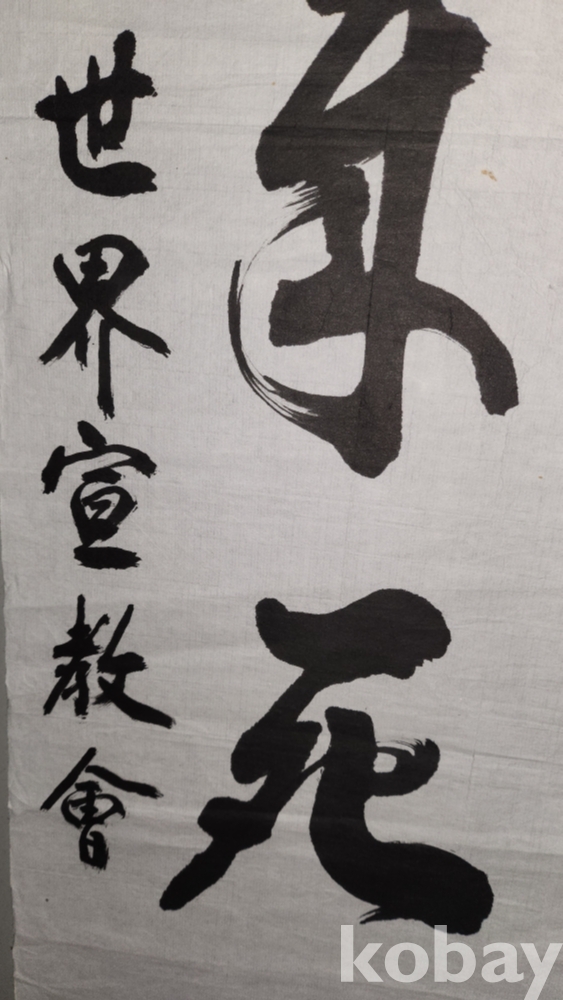 死
世界宣教會
kobay